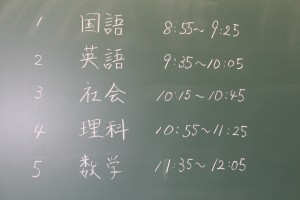 1 国語 8:55～9:25
2 英語 9:35～10:05
3 社会 10:15～10:45
4 理科 10:55～11:25
5 数学 11:35～12:05